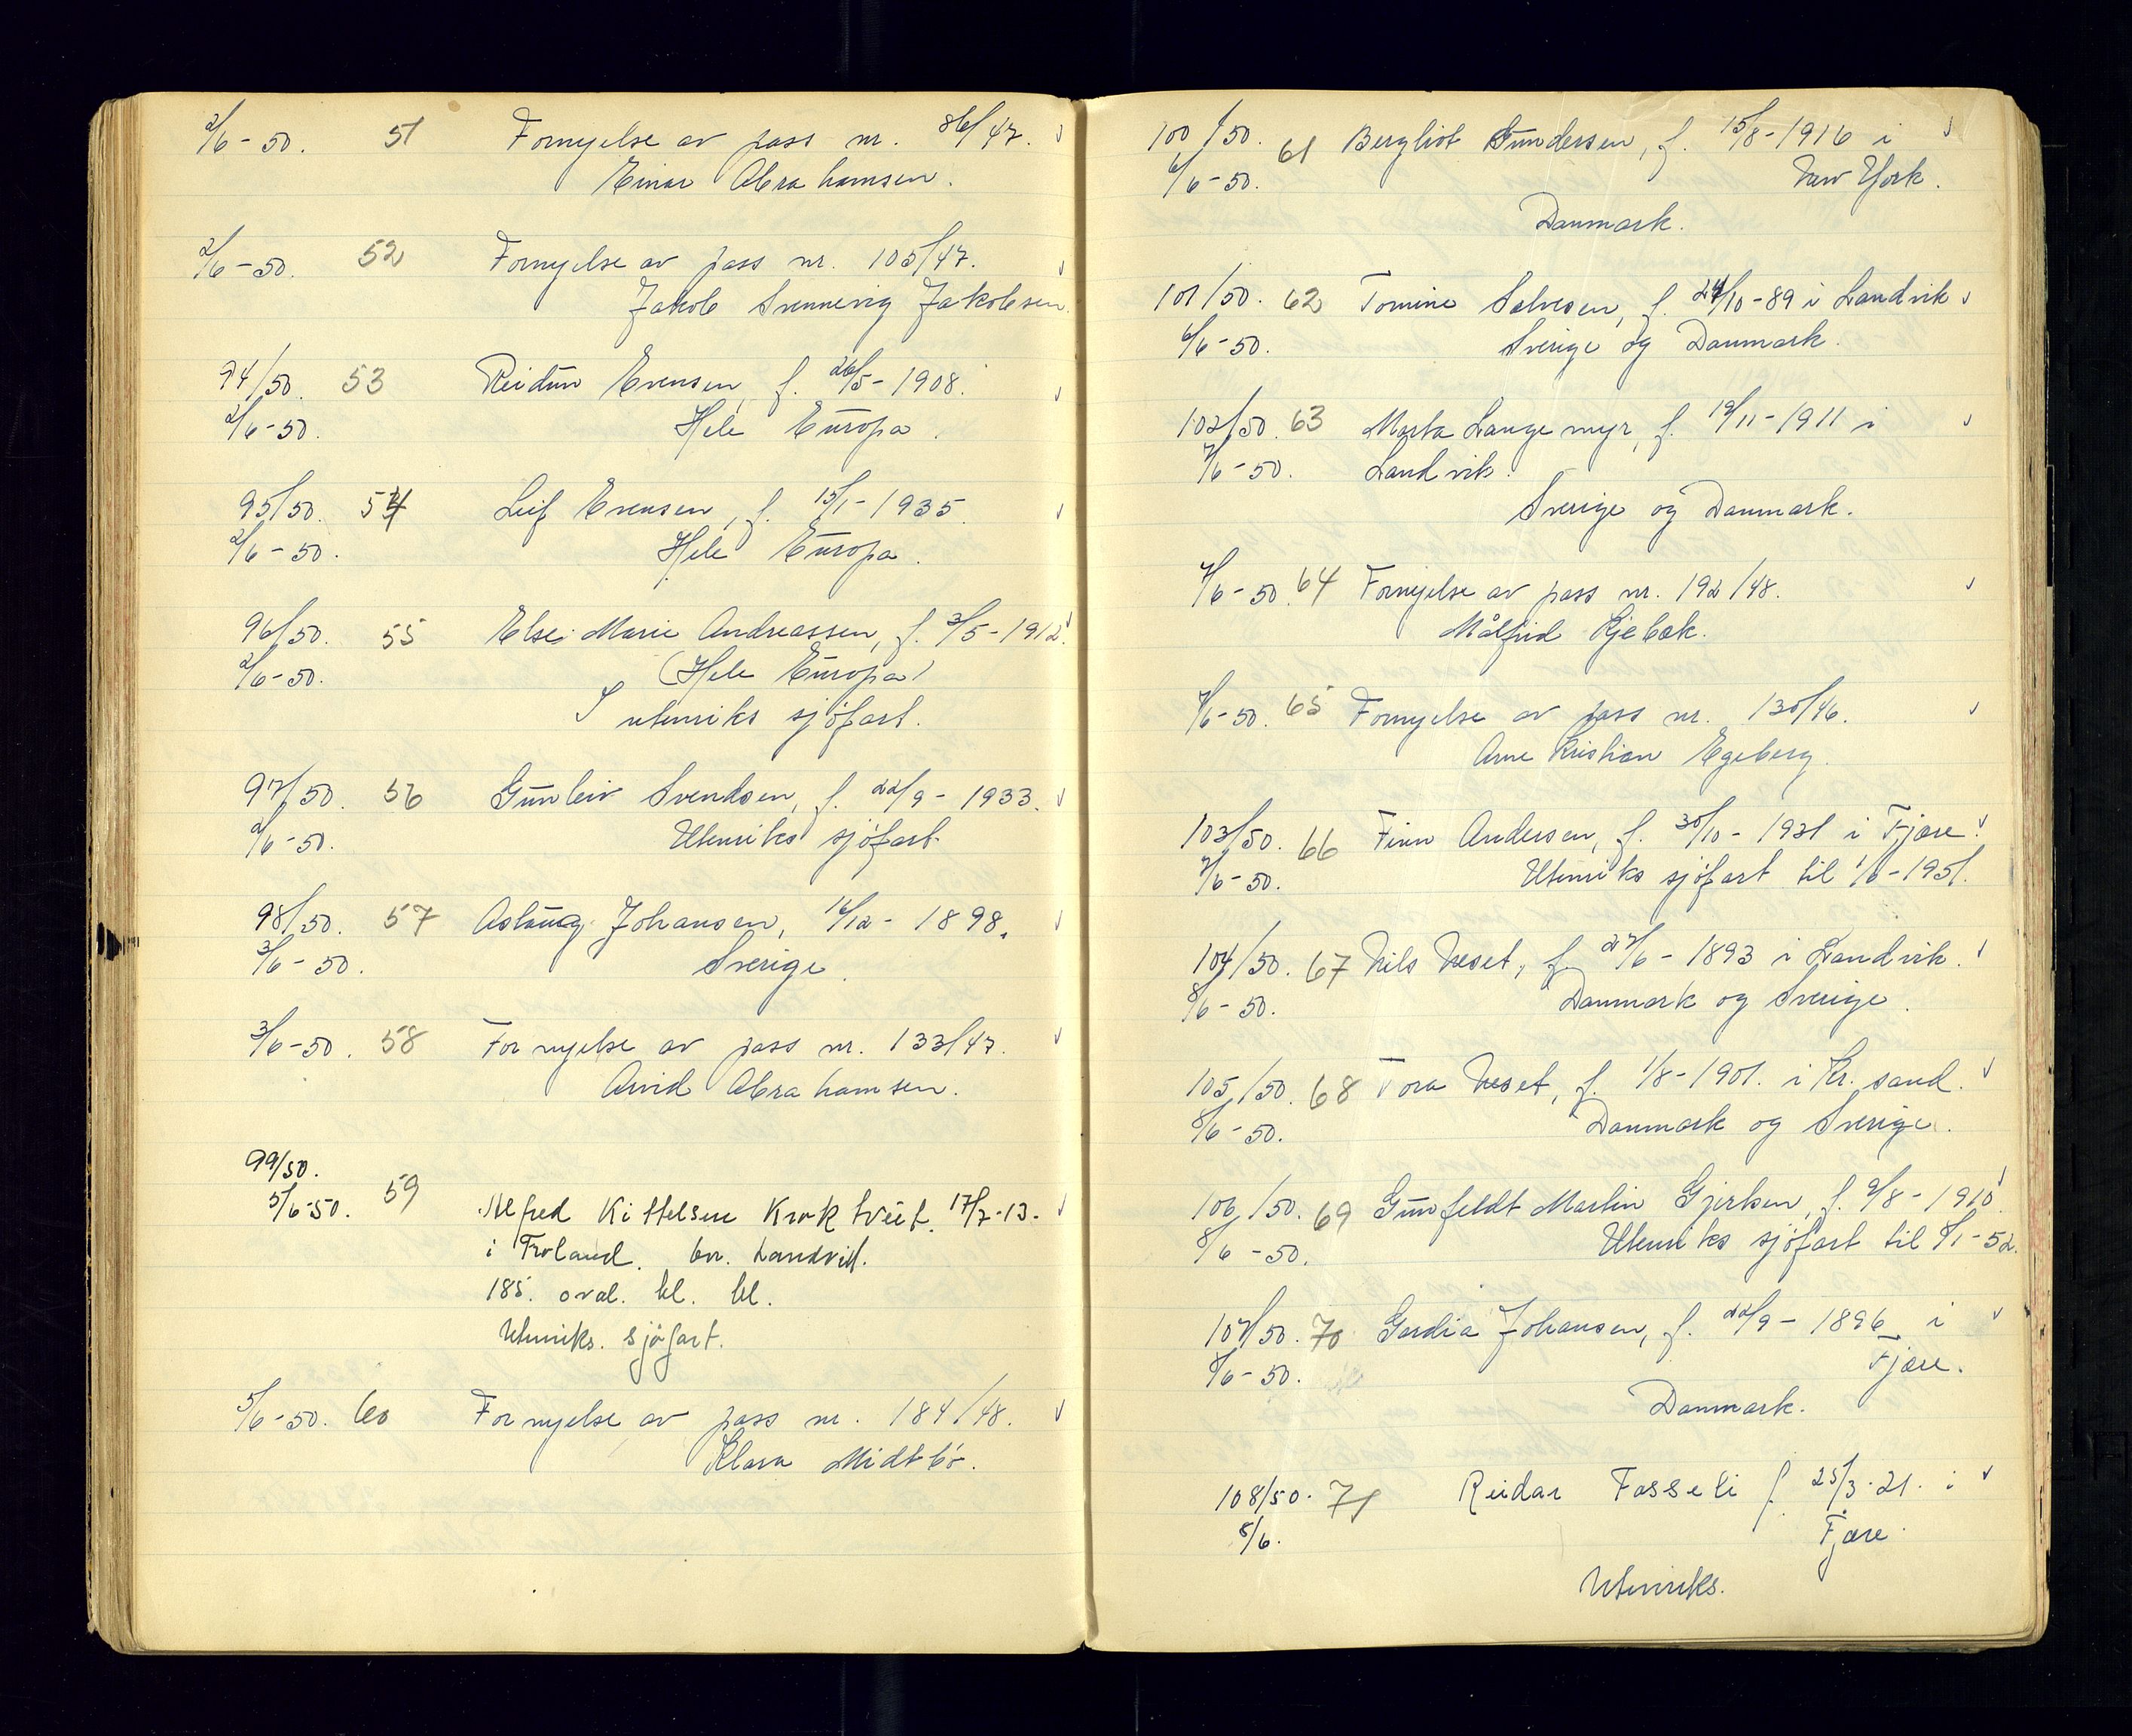 2/6-50. 51 Fornyelse av pass nr. 86/47.
Einar Abrahamsen.
2/6-50. 52 Fornyelse av pass nr. 105/47.
Jakob Svennevig Jakobsen.
94/50. 53 Reidun Evensen, f. 26/5-1908.
2/6-50. Hele Europa.
95/50. 54 Leif Evensen, f. 15/1-1935.
2/6-50. Hele Europa.
96/50. 55 Else Marie Andreassen, f. 3/5-1912.
2/6-50. (Hele Europa)
I utenriks sjöfart.
97/50. 56 Gunleiv Svendsen, f. 22/9-1933.
2/6-50. Utenriks sjöfart.
98/50. 57 Aslaug Johansen, 16/12-1898.
3/6-50. Sverige.
3/6-50. 58 Fornyelse av pass nr. 133/47.
Arvid Abrahamsen.
99/50.
5/6-50. 59 Alfred Kittelsen Kroktveit. 17/7-13.
i Froland. br. Landvik.
185. oval. bl. bl.
Utenriks. sjöfart.
5/6-50. 60 Fornyelse av pass nr. 184/48.
Klara Midtbö.
100/50. 61 Bergliot Gundersen, f. 15/8-1916 i
6/6-50. New York.
Danmark.
101/50. 62 Tomine Salvesen, f. 24/10-89 i Landvik
6/6-50. Sverige og Danmark.
102/50. 63 Marta Langemyr, f. 19/11-1911 i
7/6-50. Landvik.
Sverige og Danmark.
7/6-50. 64 Fornyelse av pass nr. 192/48.
Målfrid Kjebæk.
7/6-50. 65 Fornyelse av pass nr. 130/46.
Arne Kristian Egeberg.
103/50. 66 Finn Andersen, f. 30/10-1931 i Fjære.
7/6-50. Utenriks sjöfart til 1/6-1951.
104/50. 67 Nils Neset, f. 27/6-1893 i Landvik.
8/6-50. Danmark og Sverige.
105/50. 68 Tora Neset, f. 1/8-1901. i Kr.sand.
8/6-50. Danmark og Sverige.
106/50. 69 Gunfeldt Martin Gjerksen, f. 9/8-1910
8/6-50. Utenriks sjöfart til 8/1-52.
107/50. 70 Gardia Johansen, f. 22/9-1896 i
8/6-50. Fjære.
Danmark.
108/50. 71 Reidar Fosseli f 25/3-21. i
8/6. Fjære.
Utenriks.